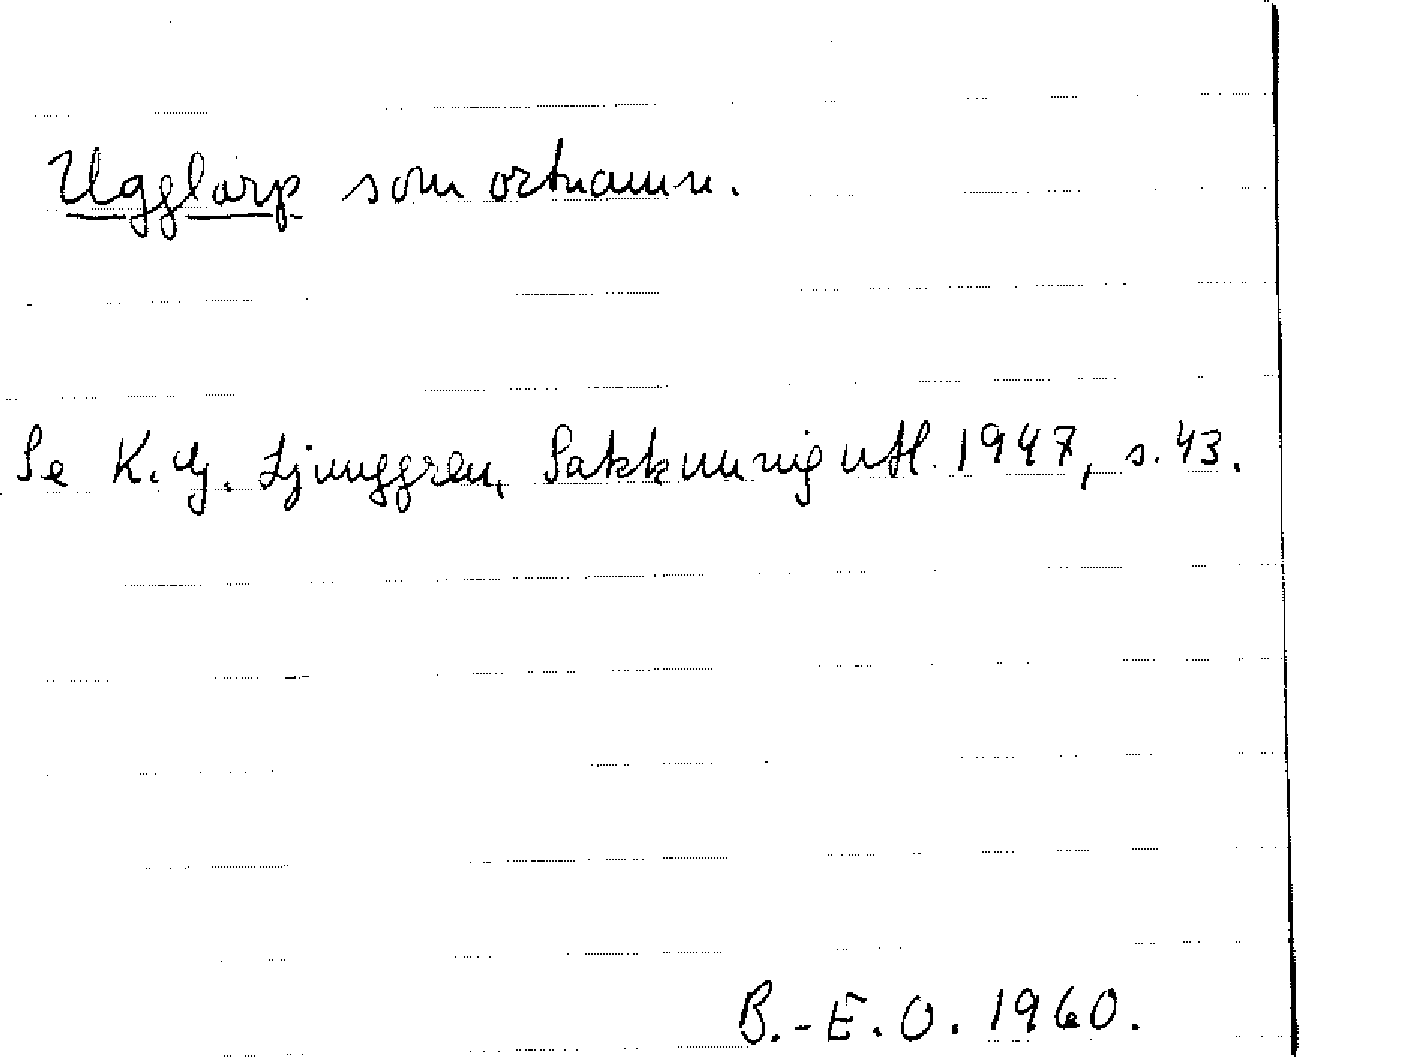 Ugglarp som ortnamn.
Se K. G. Ljunggren, Sakkunnigutl. 1947, s. 43.
B.-E. O. 1960.